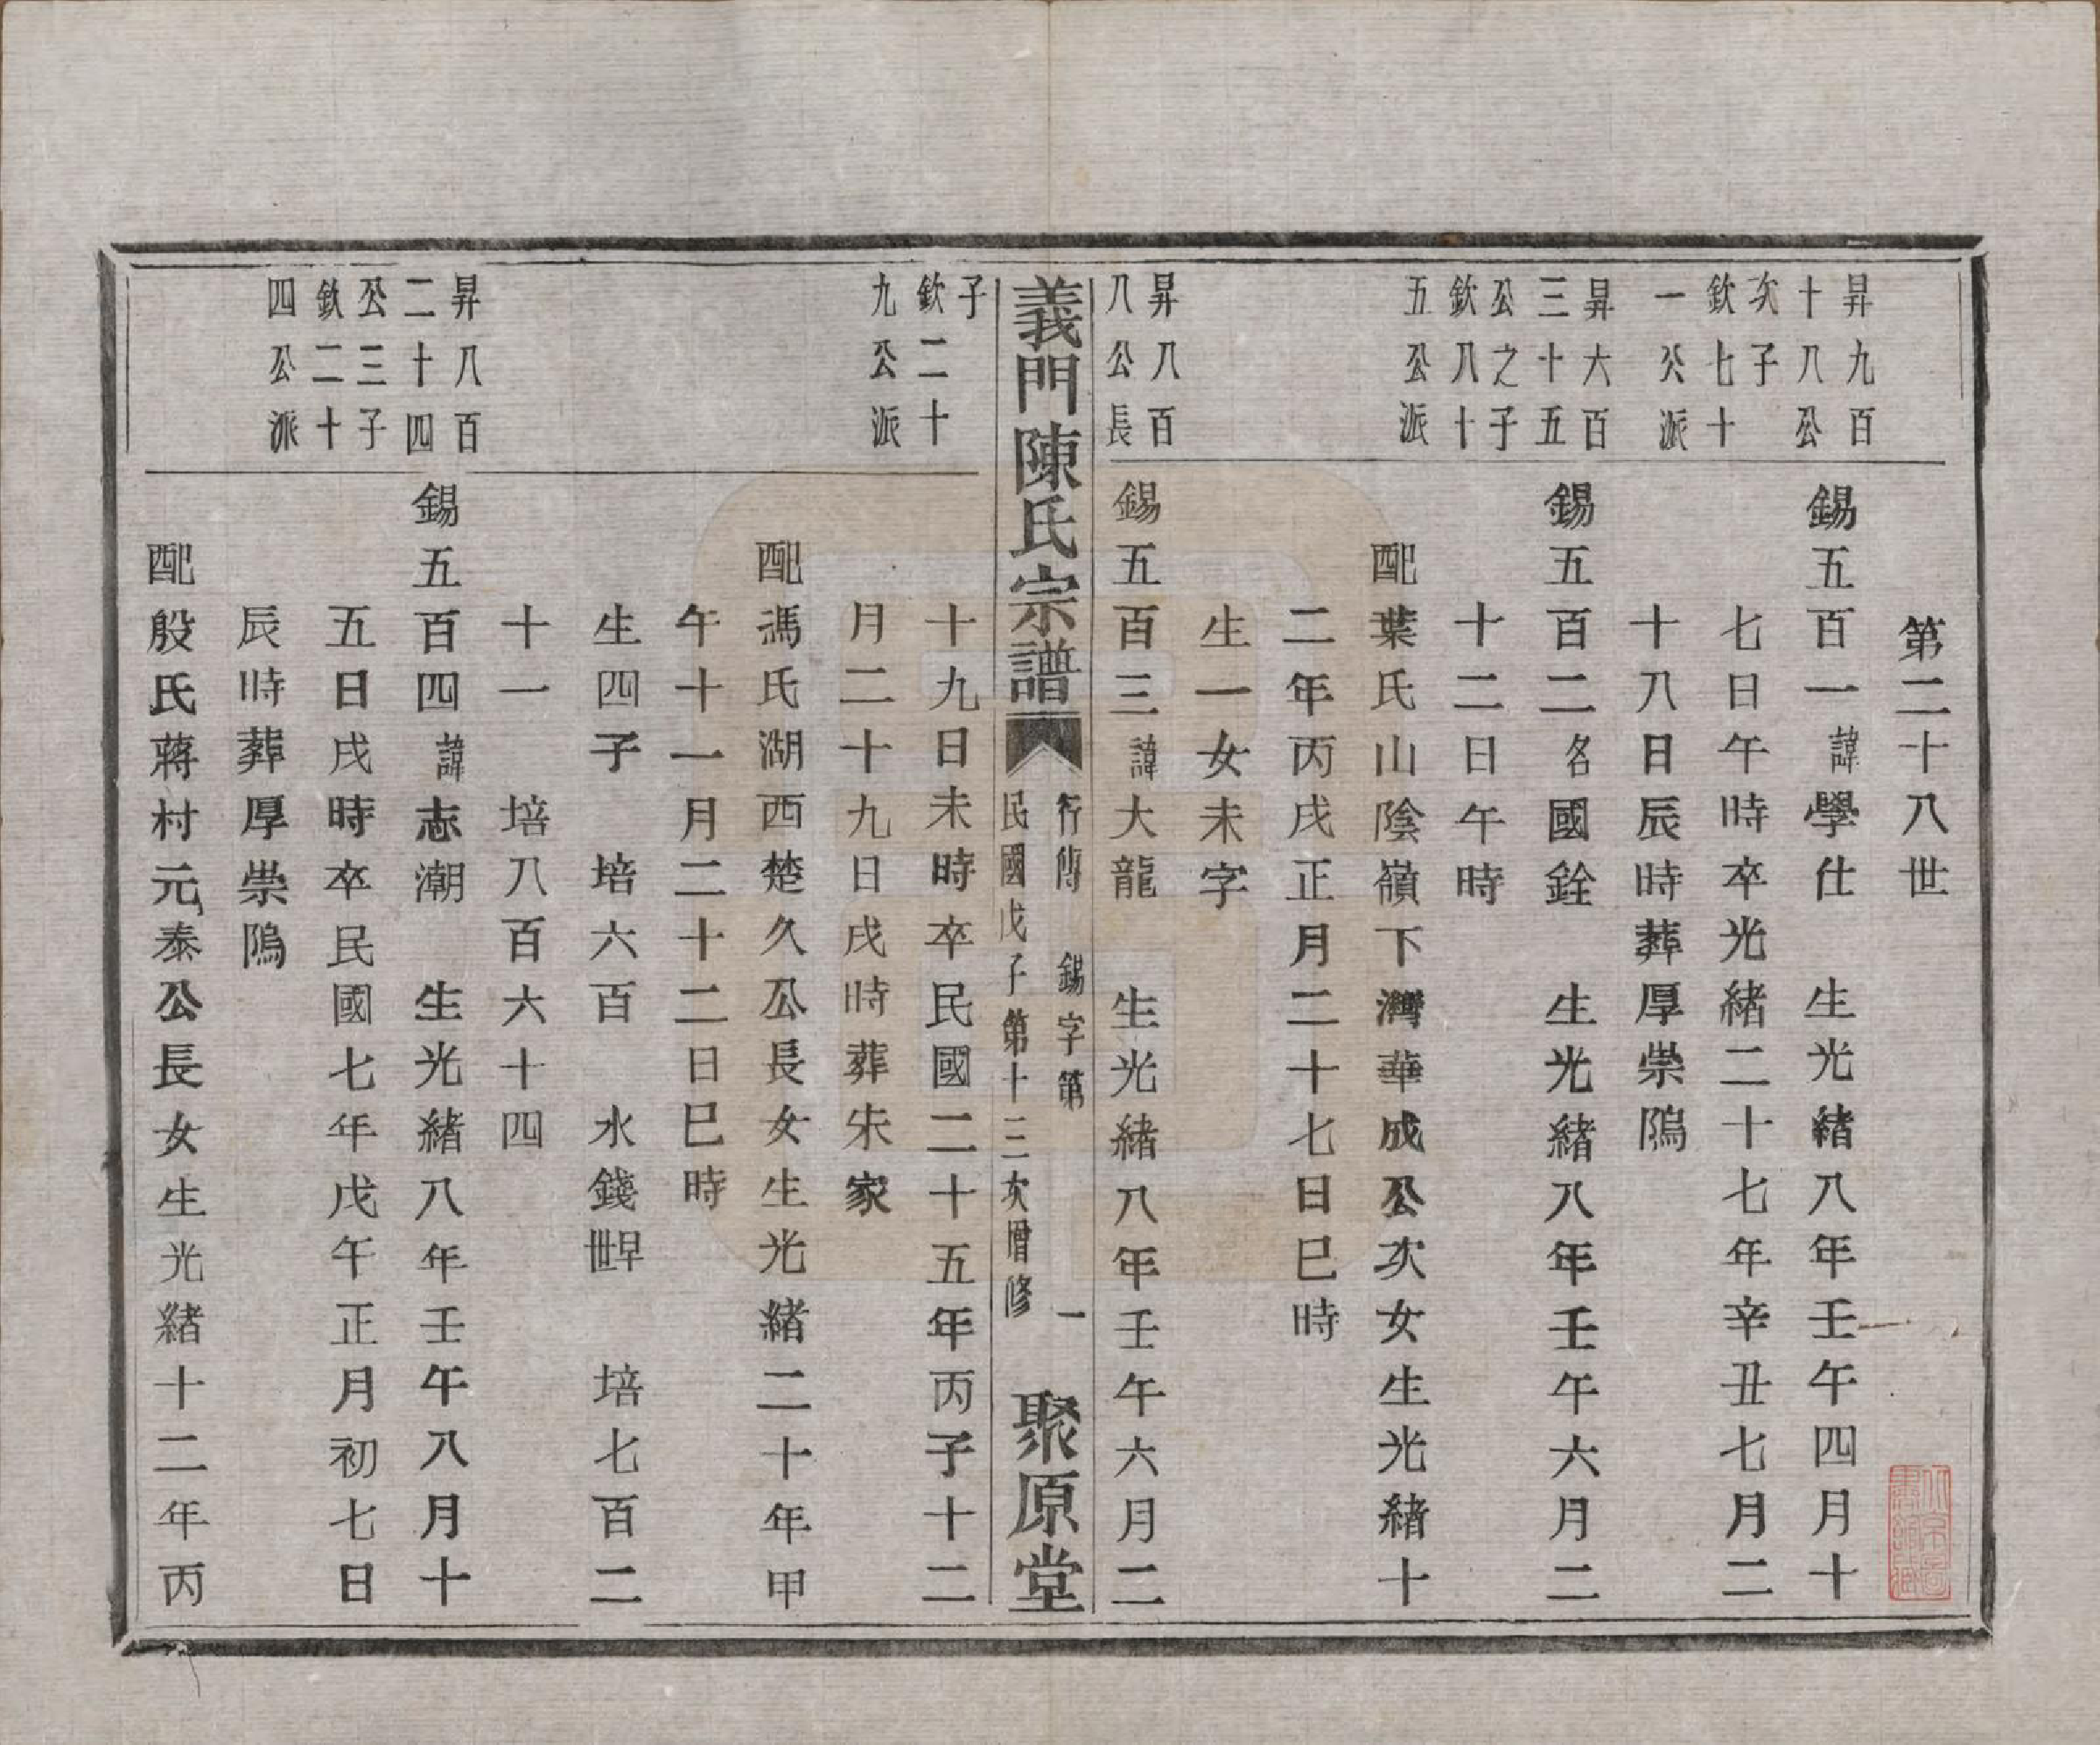 第二十八世
昇九百
十八公
次子
欽七十
一公派
錫五百一諱學仕　生光緒八年壬午四月十
七日午時卒光緒二十七年辛丑七月二
十八日辰時葬厚崇隝
昇六百
三十五
公之子
欽八十
五公派
錫五百二名國銓　生光緒八年壬午六月二
十二日午時
配葉氏山陰嶺下灣華成公次女生光緒十
二年丙戌正月二十七日巳時
生一女未字
昇八百
八公長
錫五百三諱大龍　生光緒八年壬午六月二
義門陳氏宗譜
行傳　錫字第　一
民國戊子第十三次增修
聚原堂
子
欽二十
九公派
十九日未時卒民國二十五年丙子十二
月二十九日戌時葬朱家
配馮氏湖西楚久公長女生光緒二十年甲
午十一月二十二日巳時
生四子　培六百　水錢早世　培七百二
十一　培八百六十四
昇八百
二十四
公三子
欽二十
四公派
錫五百四諱志潮　生光緒八年壬午八月十
五日戌時卒民國七年戊午正月初七日
辰時葬厚崇隝
配殷氏蔣村元泰公長女生光緒十二年丙